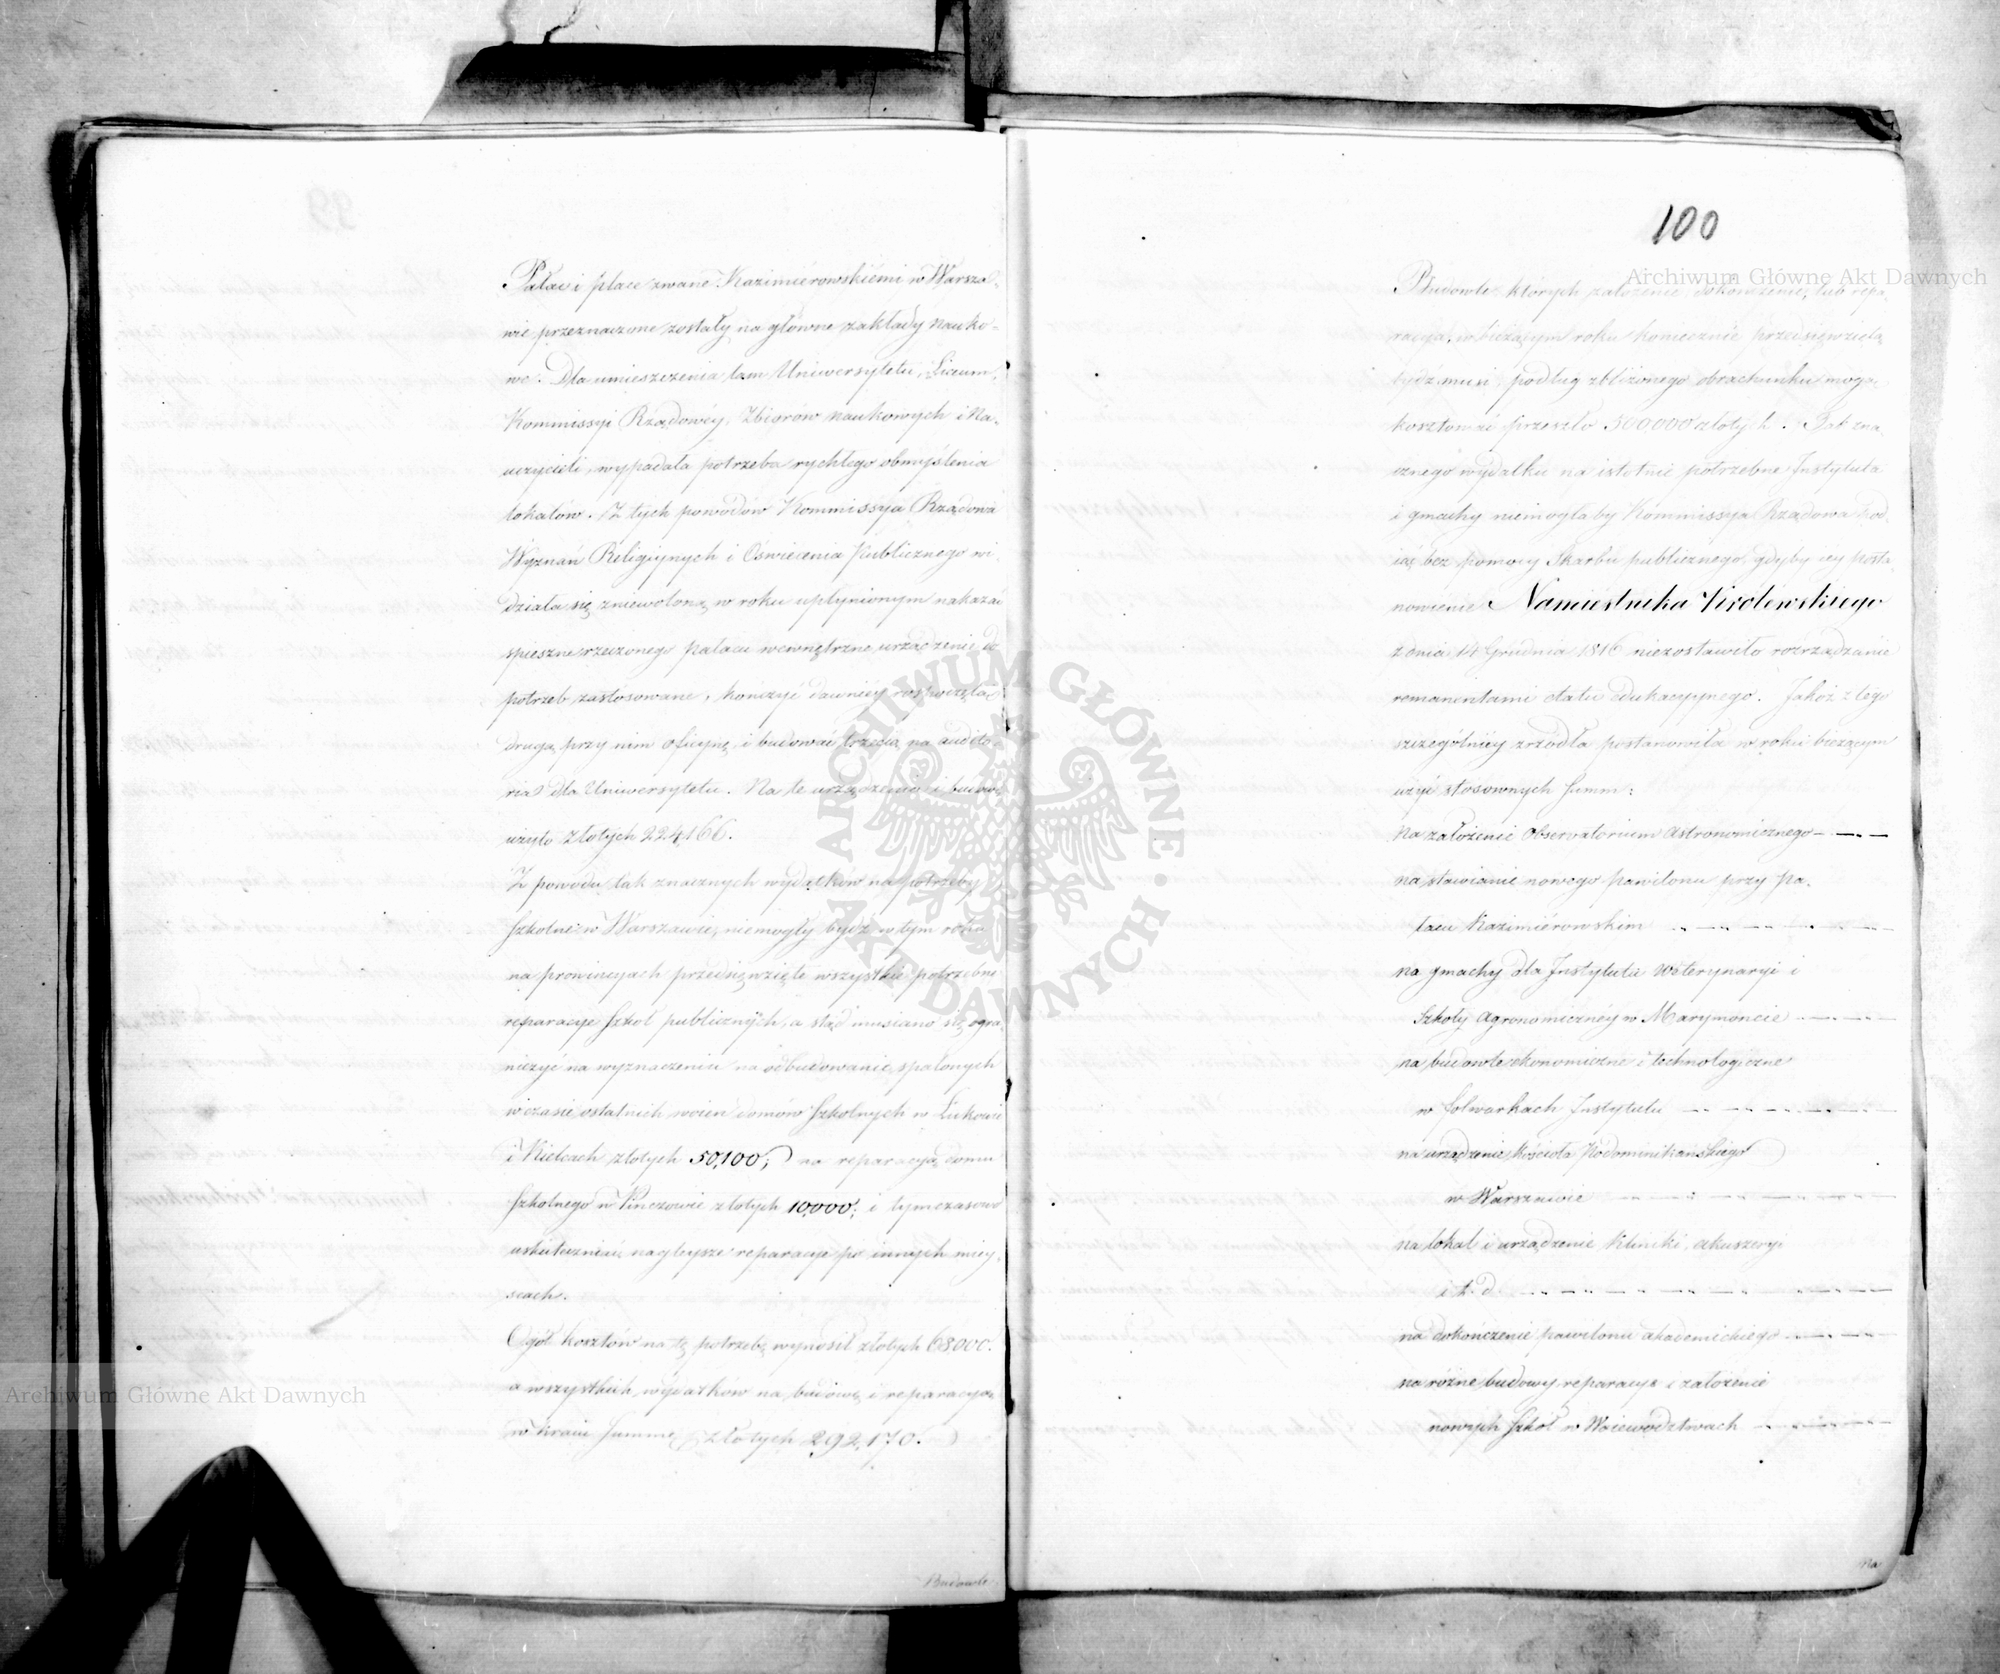 Pałac i place zwane Kazimiérowskiémi w Warsza-
wie przeznaczone zostały na główne zakłady nauko-
we. Dla umieszczenia tam Uniwersytetu, Liceum,
Kommissyi Rządowéy, Zbiorów naukowych i Na-
uczycieli, wypadała potrzeba rychłego obmyślenia
lokalów. Z tych powodów Kommissya Rządowa
Wyznań Religiynych i Oświecenia Publicznego wi-
działa się zniewoloną w roku upłynionym nakazać
spieszne rzeczonego pałacu wewnętrzne urządzenie do
potrzeb zastosowane, kończyć dawniéy rospoczętą
drugą przy nim oficynę i budować trzecią na audito-
ria dla Uniwersytetu. Na te urządzenia i budowy
użyto złotych 224,166.
Z powodu tak znacznych wydatków na potrzeby
Szkolne w Warszawie, niemogły bydź w tym roku
na prowincyach przedsięwzięte wszystkie potrzebne
reparacye Szkół publicznych, a stąd musiano się ogra-
niczyć na wyznaczeniu na odbudowanie spalonych
w czasie ostatnich woien domów Szkolnych w Łukowie
i Kielcach złotych 50,100; na reparacyą domu
Szkolnego w Pinczowie złotych 10,000; i tymczasowo
uskuteczniać nagleysze reparacye po innych miey-
scach.
Ogół kosztów na tę potrzebę wynosił złotych 68,000.
a wszystkich wydatków na budowę i reparacye
w kraiu Summę złotych 292,170.
Budowle
100
Budowle których założenie, dokończenie, lub repa-
racya, w bieżącym roku koniecznie przedsięwziętą
bydź musi, podług zbliżonego obrachunku mogą
kosztować przeszło 500,000 złotych. Tak zna-
cznego wydatku na istotnie potrzebne Instytuta
i gmachy niemogłaby Kommissya Rządowa pod-
iąć bez pomocy Skarbu publicznego, gdyby iéy posta-
nowienie Namiestnika Królewskiego
z dnia 14 Grudnia 1816 niezostawiło rozrządzanie
remanentami etatu edukacyynego. Jakoż z tego
szczególniéy zrzódła postanowiła w roku bieżącym
użyć stosownych summ:
na założenie Observatorium astronomicznego
na stawianie nowego pawilonu przy pa-
łacu Kazimiérowskim
na gmachy dla Instytutu weterynaryi i
Szkoły agronomicznéy w Marymoncie
na budowle ekonomiczne i technologiczne
w folwarkach Instytutu
na urządzenie kościoła Podominikańskiego
w Warszawie
na lokal i urządzenie kliniki, akuszeryi
i t. d.
na dokończenie pawilonu akademickiego
na różne budowy, reparacye i założenie
nowych Szkół w Woiewództwach
Na
Archiwum Główne Akt Dawnych
Archiwum Główne Akt Dawnych
ARCHIWUM GŁÓWNE · AKT DAWNYCH ·